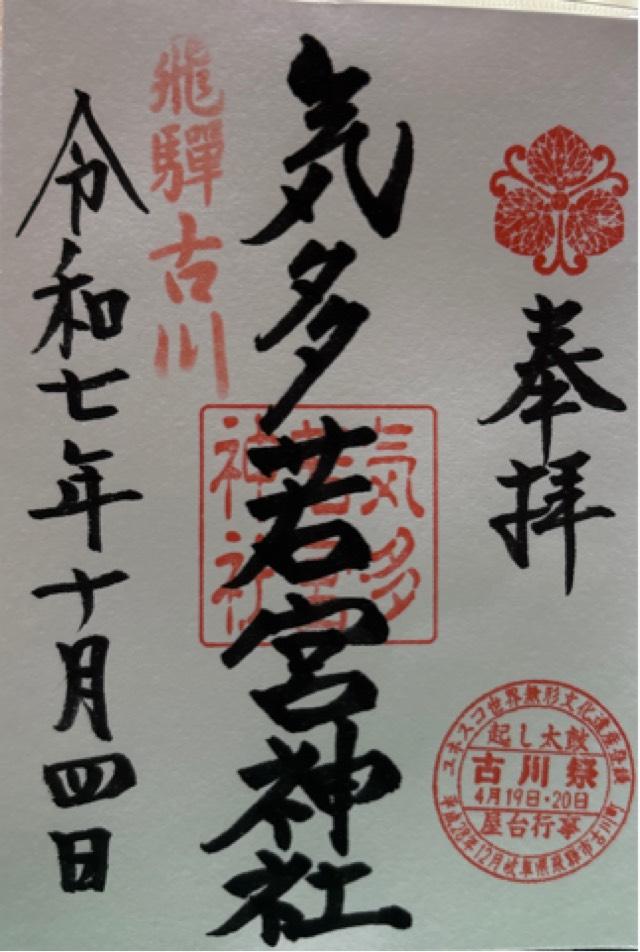 奉拝
ユネスコ世界無形文化遺産登録
起し太鼓
古川祭
4月19日・20日
屋台行事
平成28年12月岐阜県飛騨市古川町
気多若宮神社
気多
若宮
神社
飛驒古川
令和七年十月四日